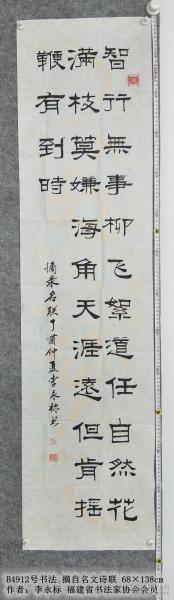 智行無事柳飞絮道任自然花
满枝莫嫌海角天涯遠但肯摇
鞭有到時
摘录名联丁酉仲夏李永标书
B4912号书法.摘自名文诗联 68×138cm
作者：李永标 福建省书法家协会会员